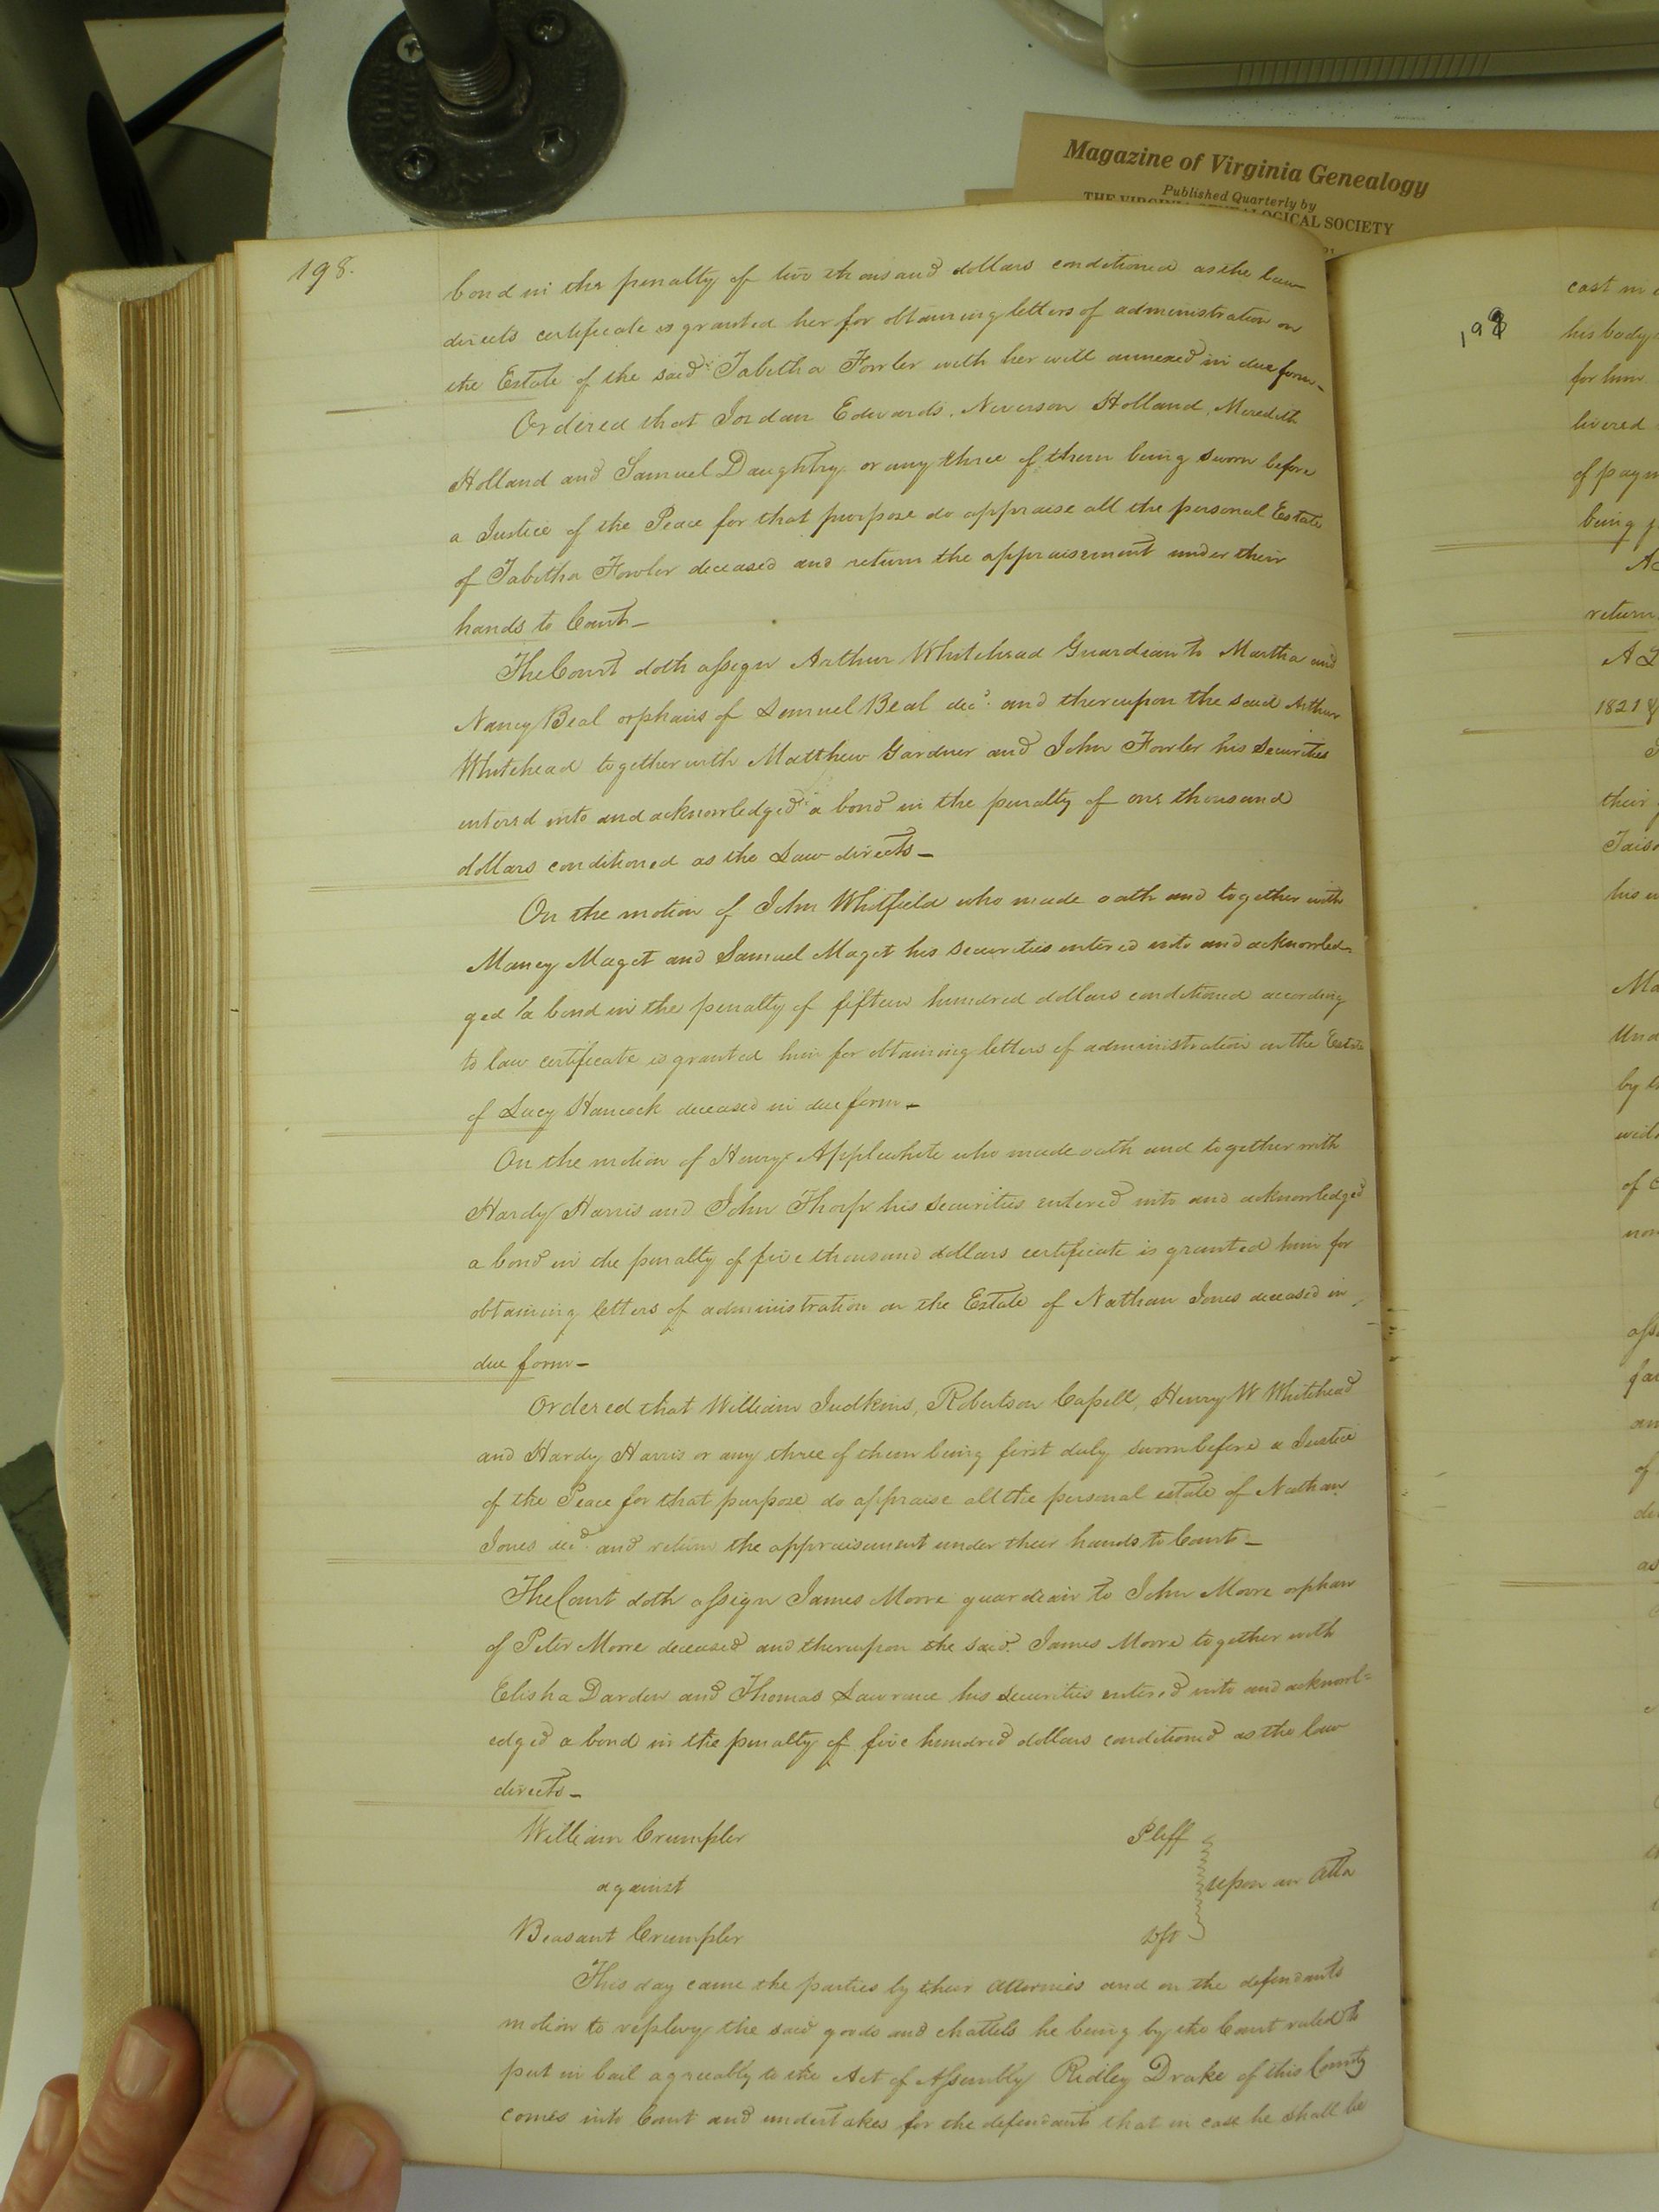 Magazine of Virginia Genealogy
Published Quarterly by
THE VIRGINIA GENEALOGICAL SOCIETY
198.
bond in the penalty of two thousand dollars conditioned as the law
directs certificate is granted her for obtaining letters of administration on
the Estate of the said Tabitha Fowler with her will annexed in due form_
Ordered that Jordan Edwards, Neverson Holland, Meredith
Holland and Samuel Daughtry or any three of them being sworn before
a Justice of the Peace for that purpose do appraise all the personal Estate
of Tabitha Fowler deceased and return the appraisement under their
hands to Court_
The Court doth assign Arthur Whitehead Guardian to Martha and
Nancy Beal orphans of Samuel Beal decd. and thereupon the said Arthur
Whitehead together with Matthew Gardner and John Fowler his Securities
entered into and acknowledged a bond in the penalty of one thousand
dollars conditioned as the Law directs_
On the motion of John Whitfield who made oath and together with
Maney Maget and Samuel Maget his securities entered into and acknowled-
ged a bond in the penalty of fifteen hundred dollars conditioned according
to law certificate is granted him for obtaining letters of administration on the Estate
of Lucy Hancock deceased in due form_
On the motion of Henry Applewhite who made oath and together with
Hardy Harris and John Thorp his securities entered into and acknowledged
a bond in the penalty of five thousand dollars certificate is granted him for
obtaining letters of administration on the Estate of Nathan Jones deceased in
due form_
Ordered that William Judkins, Robertson Capell, Henry W Whitehead
and Hardy Harris or any three of them being first duly sworn before a Justice
of the Peace for that purpose do appraise all the personal estate of Nathan
Jones decd. and return the appraisement under their hands to Court_
The Court doth assign James Moore guardian to John Moore orphan
of Peter Moore deceased and thereupon the said James Moore together with
Elisha Darden and Thomas Lawrence his securities entered into and acknowl=
edged a bond in the penalty of five hundred dollars conditioned as the law
directs_
William Crumpler Pltff
against upon an Atta
Beasant Crumpler Dft
This day came the parties by their Attornies and on the defendants
motion to replevy the said goods and chattels he being by the Court ruled to
put in bail agreeably to the Act of Assembly Ridley Drake of this County
comes into Court and undertakes for the defendants that in case he shall be
198
cast in
his body
for him
livered
of paym
being
return
1821 &
their
his
Ma
Und
by th
of